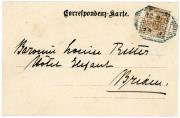 Correspondenz-Karte.
Baronin Louise Ritter
Hotel Elefant
Brixen.